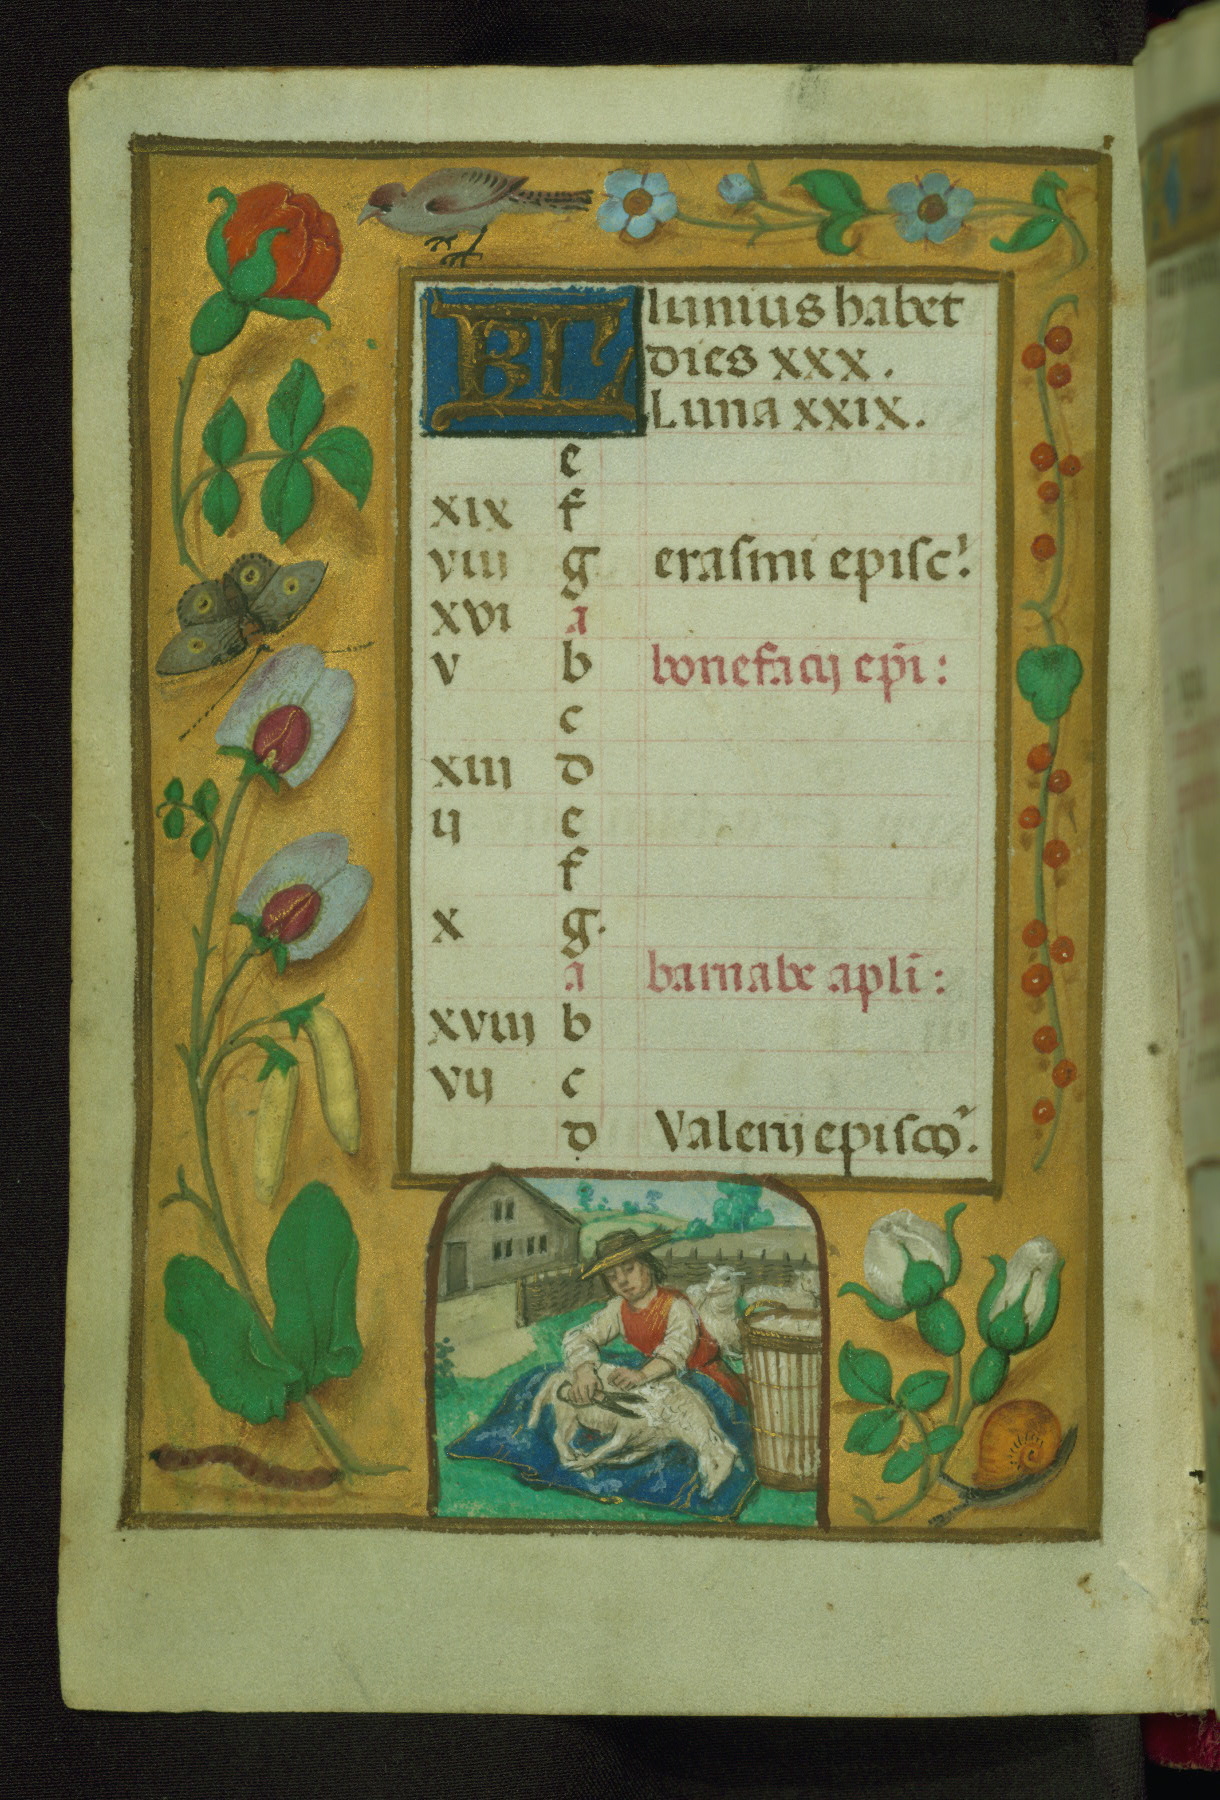 KL Iunius habet
dies xxx.
Luna xxix.
e
xix f
viii g erasmi episc'.
xvi a
v b bonefacij ep̄i:
c
xiij d
ij e
f
x g.
a barnabe apl̄i:
xviij b
vij c
d Valerij episco'.